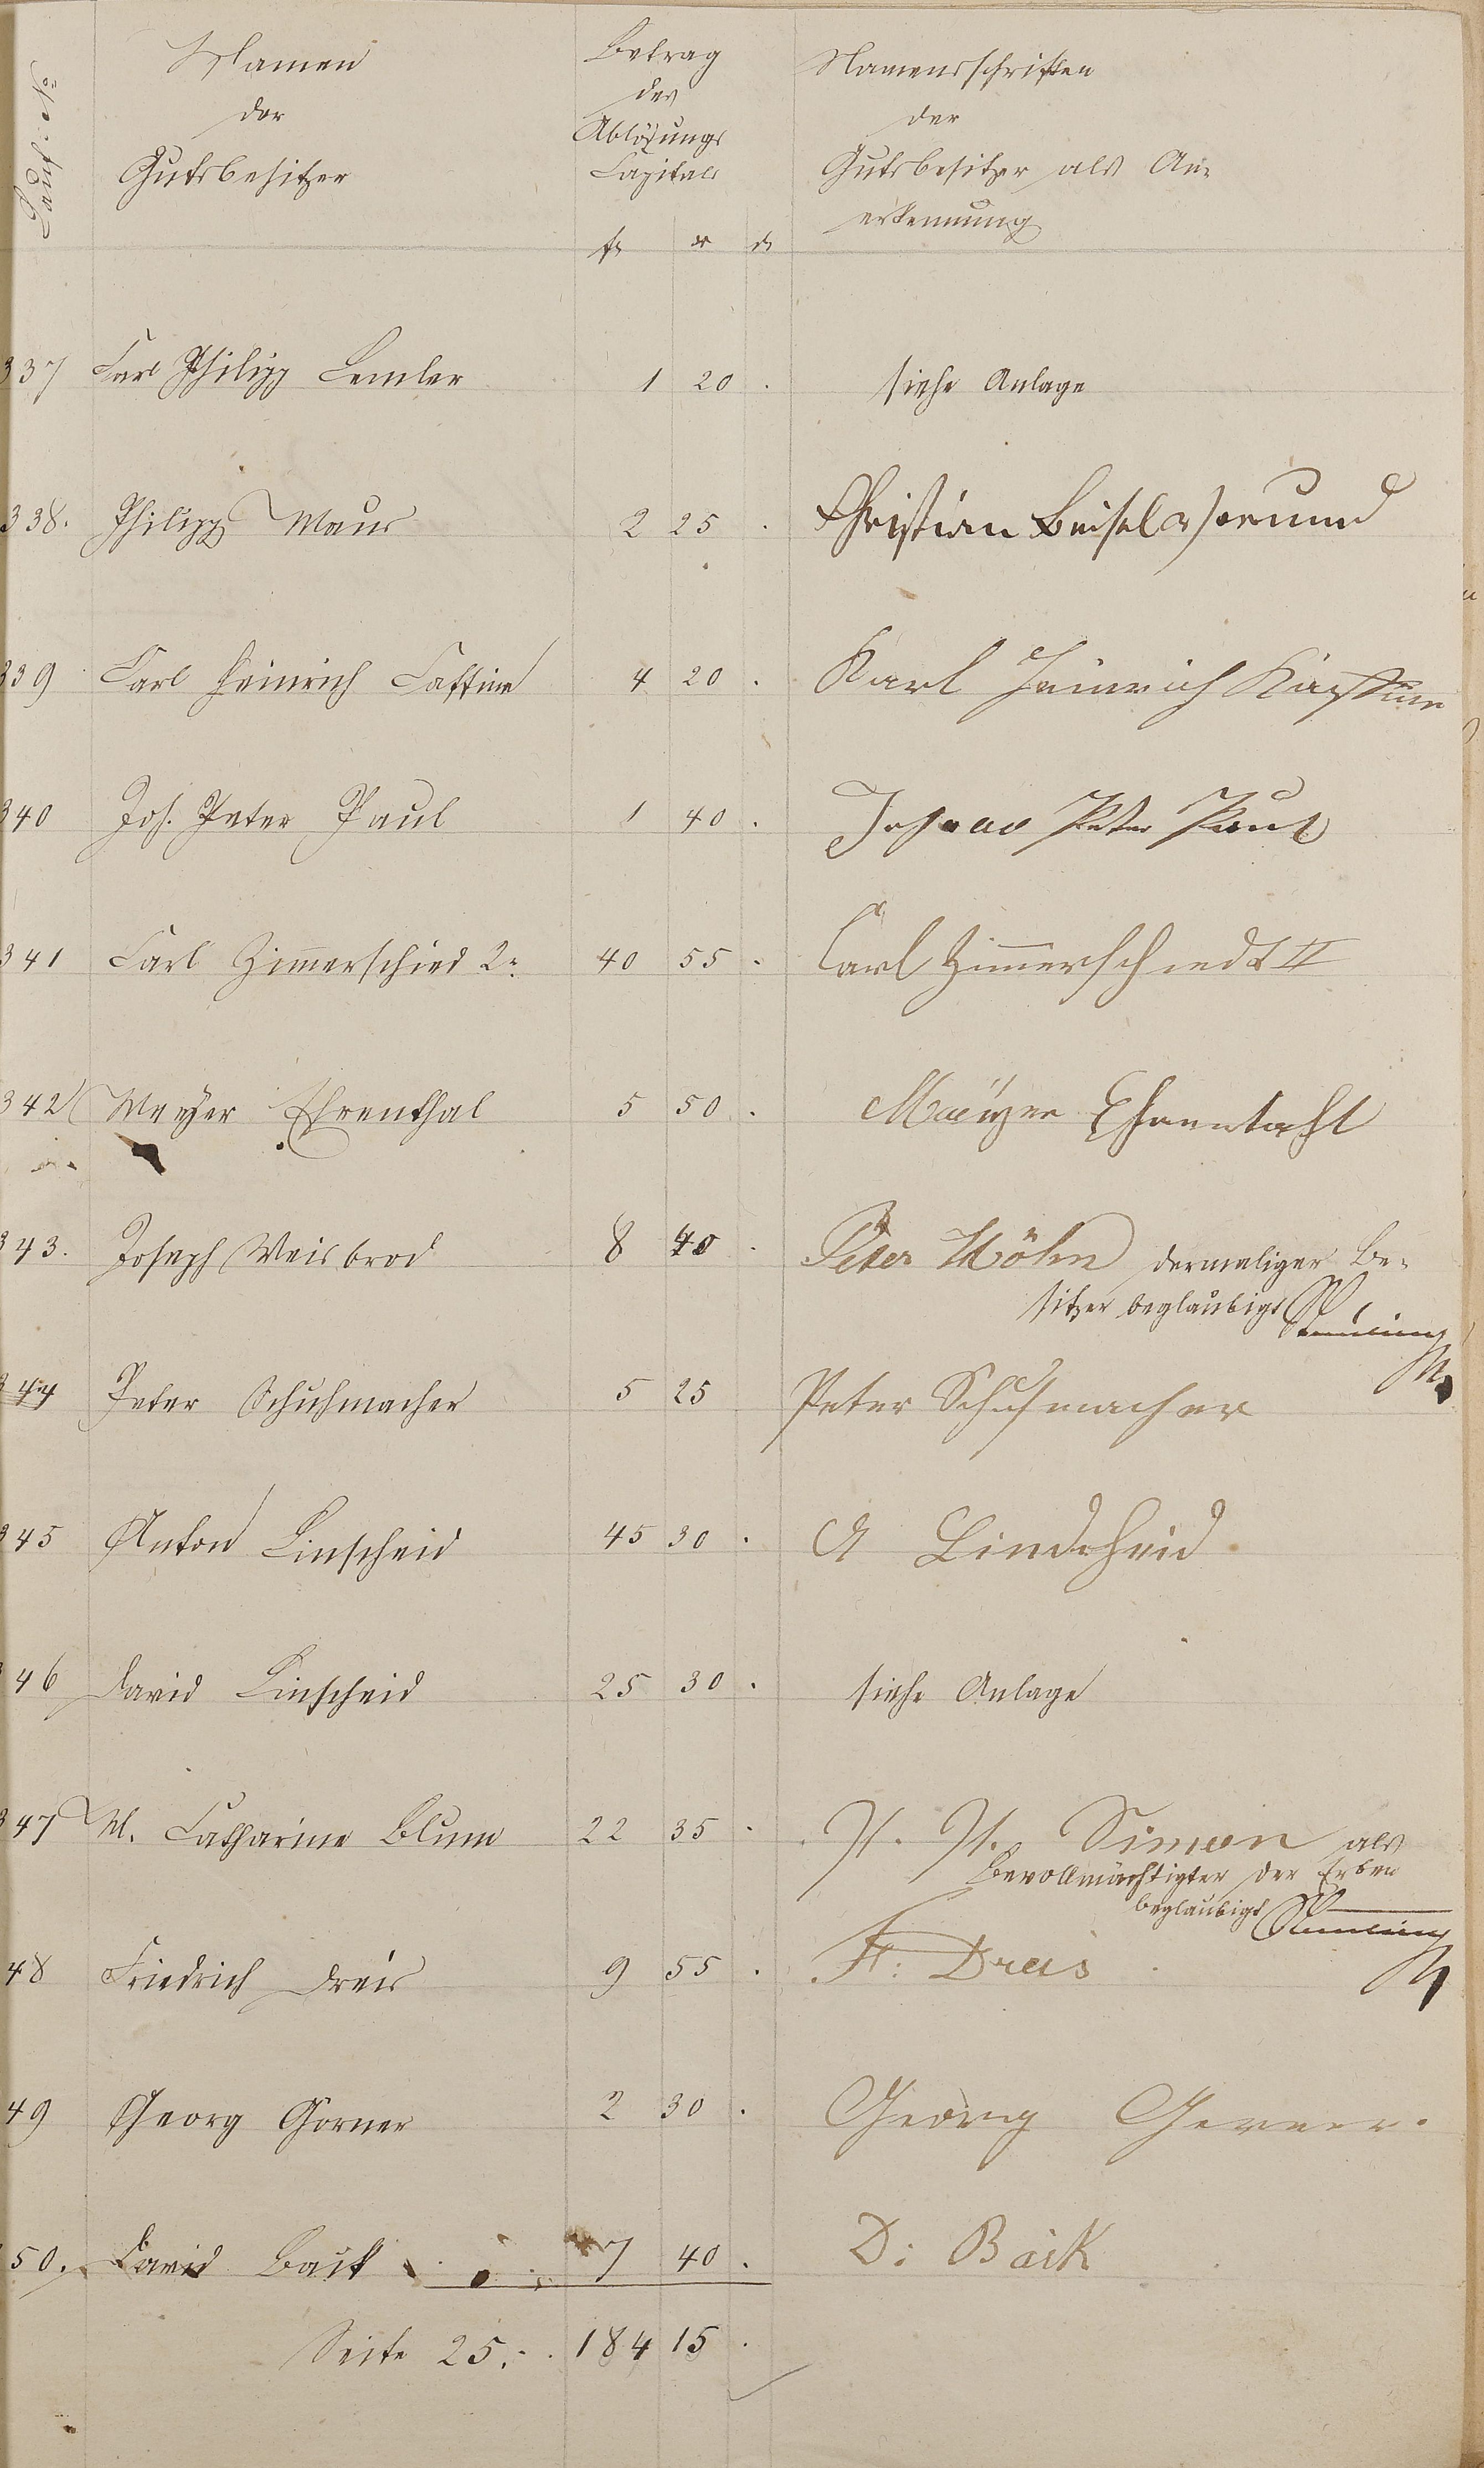 Laufd. No.
Namen
der
Gutsbesitzer
Betrag
des
Ablösungs
Capitals
fl x d
Namensschriften
der
Gutsbesitzer als An-
erkennung
337 Carl Philipp Lemler 1 20 . siehe Anlage
338. Philipp Maus 2 25 . Christian Beisel
339 Carl Heinrich Castine 4 20 . Karl Heinrich
340 Joh. Peter Paul 1 40 . Peter Paul
341 Carl Zimerschied 2r 40 55 . Carl Zimerschiedt II
342 Meyer Ehrenthal 5 50 . Ehrentahl
343. Joseph Weisbrod 8 40 . Peter Höhn dermaliger Be-
sitzer beglaubigt
344 Peter Schuhmacher 5 25 Peter Schuhmacher
345 Anton Linscheid 45 30 . A Lindscheid
346 David Linscheid 25 30 . siehe Anlage
347 M. Catharine Blum 22 35 . H. H. Simon als
Bevollmächtigter der Erben
beglaubigt
48 Friedrich Dreis 9 55 . Fr: Dreis
49 Georg Gerner 2 30 . Georg Gerner.
50. David Back 7 40 . D: Back
Seite 25. 184 15 .